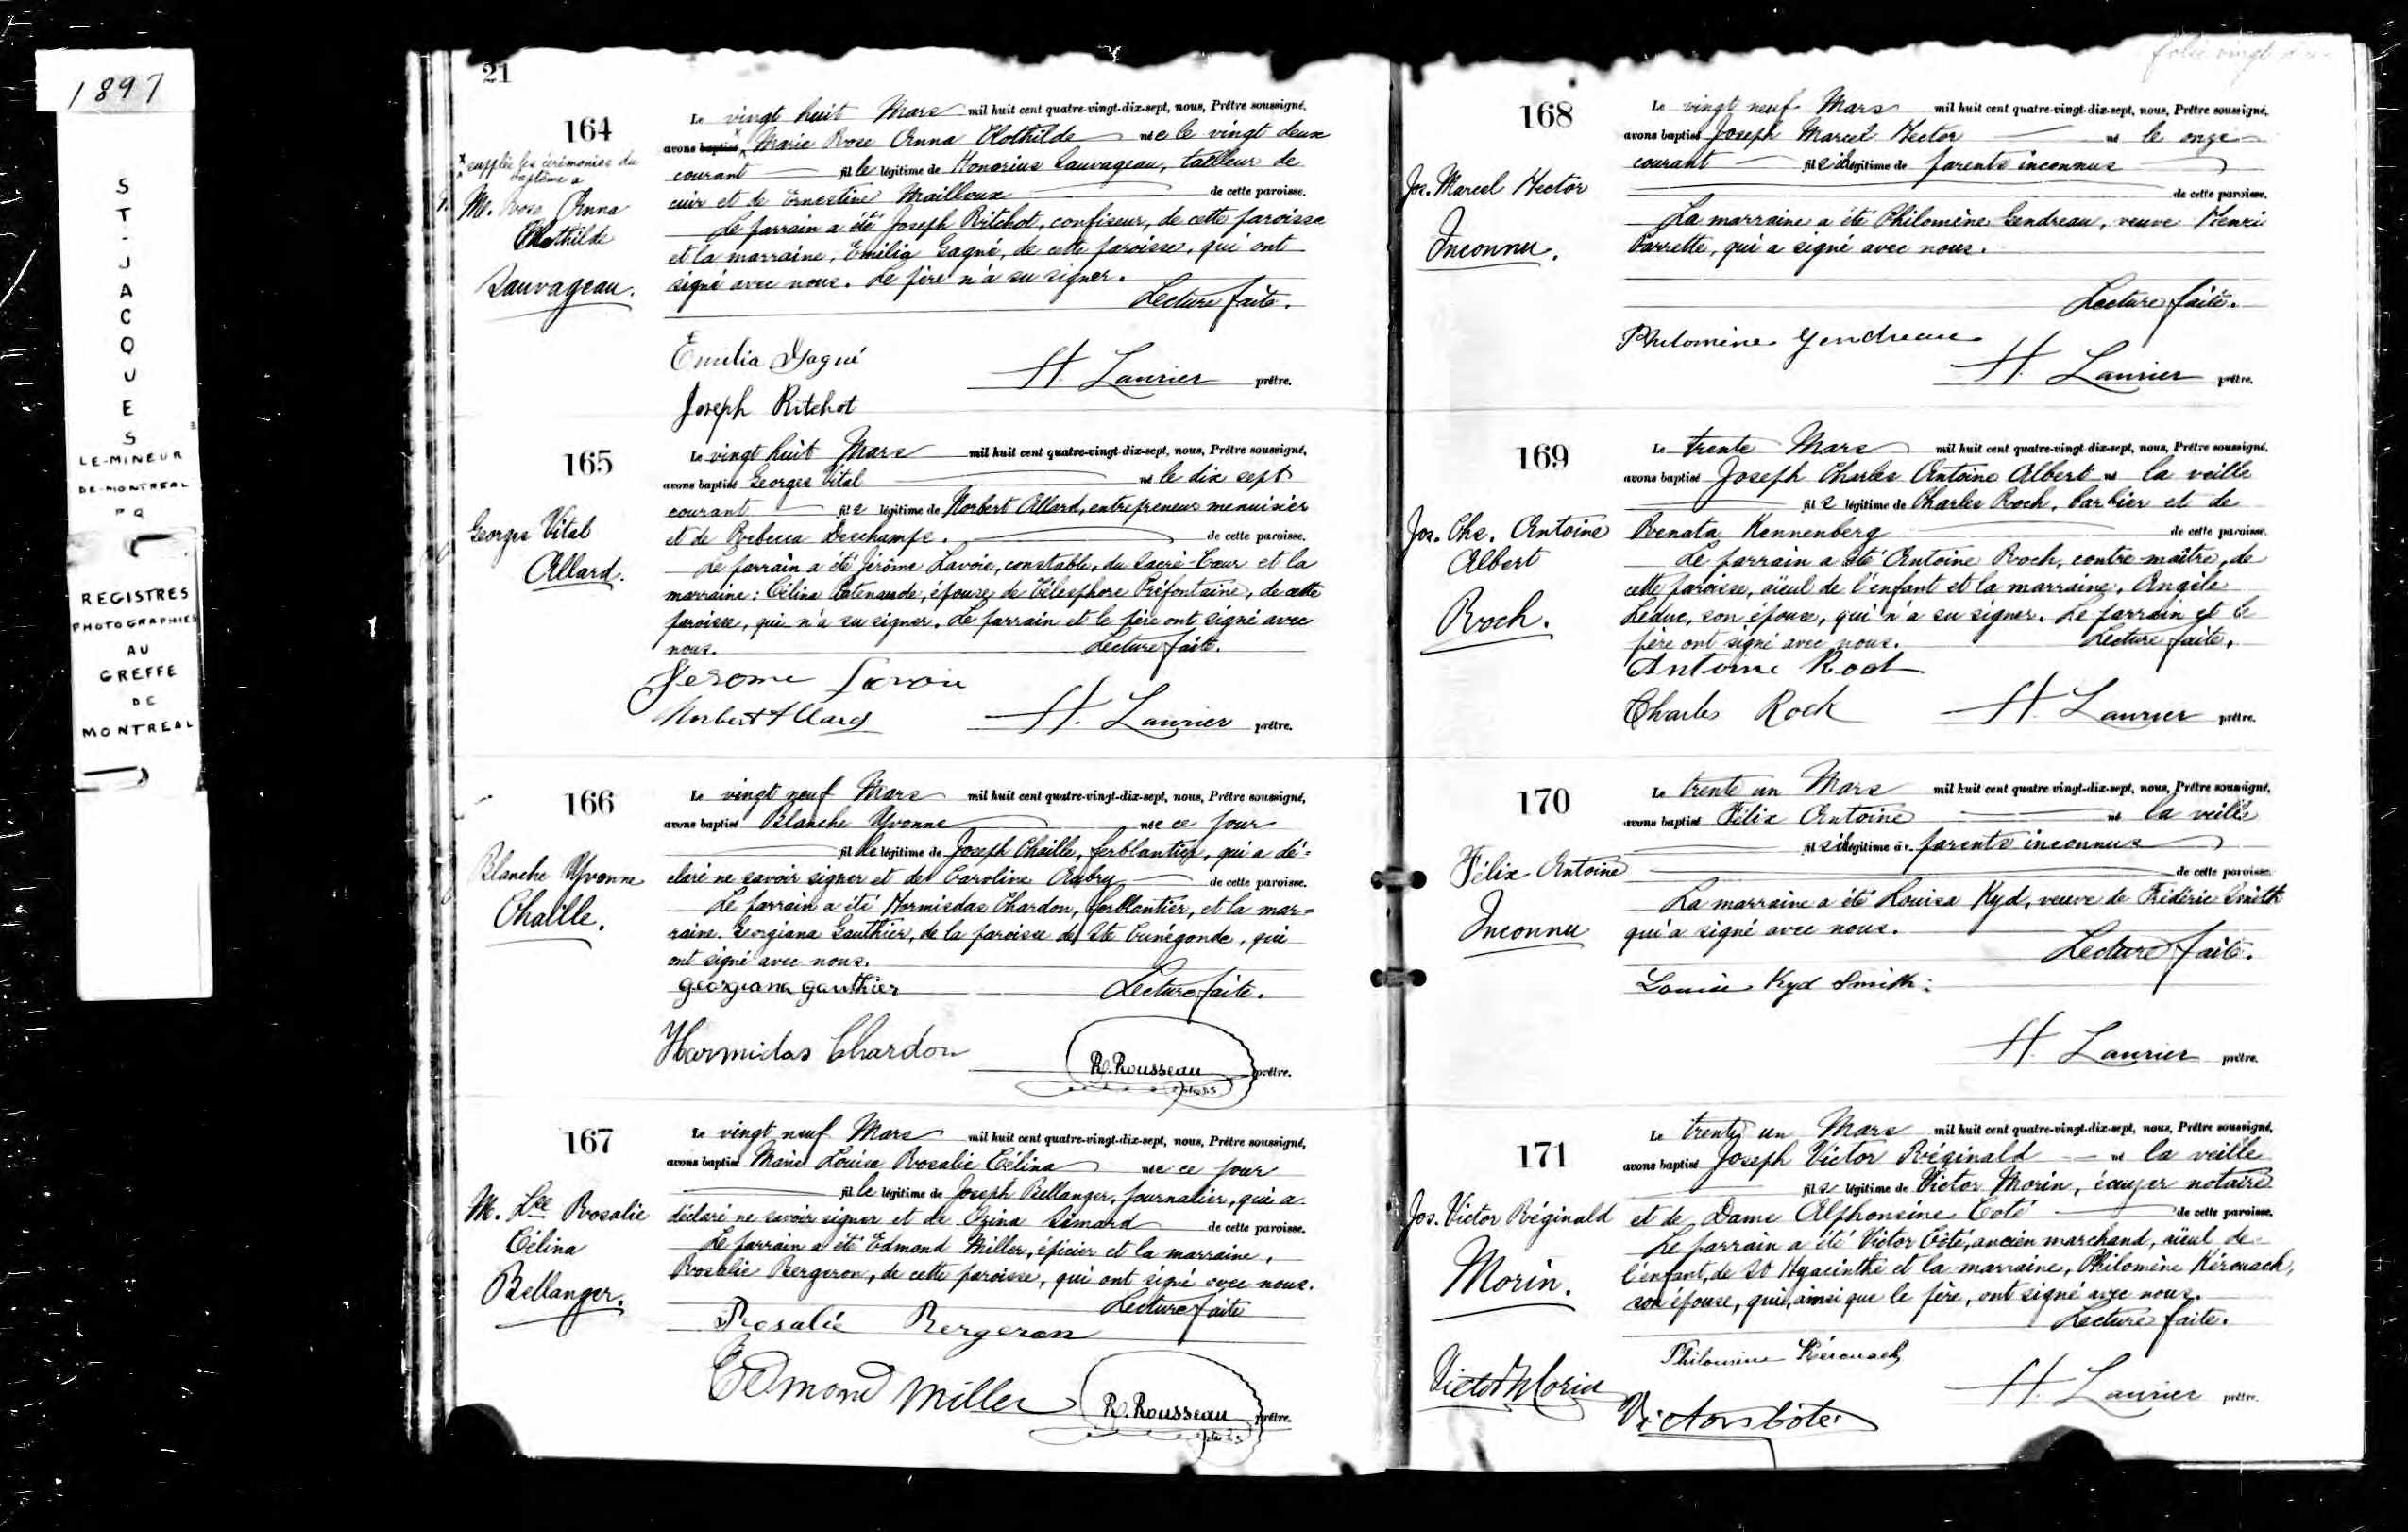 1897
ST-JACQUES
LE-MINEUR
DE-MONTREAL
PQ
REGISTRES
PHOTOGRAPHIES
AU
GREFFE
DE
MONTREAL
21
164
x supplée les cérémonies du
baptême a
M. Rose Anna
Clothilde
Sauvageau.
Le vingt huit Mars mil huit cent quatre-vingt-dix-sept, nous, Prêtre soussigné,
avons baptisé x Marie Rose Anna Clothilde née le vingt deux
courant fille légitime de Honorius Sauvageau, tailleur de
cuir et de Ernestine Mailloux de cette paroisse.
Le parrain a été Joseph Ritchot, confiseur, de cette paroisse
et la marraine, Emilia Gagné, de cette paroisse, qui ont
signé avec nous. Le père n'a su signer.
Lecture faite.
Emilia Gagné
H. Laurier prêtre.
Joseph Ritchot
165
Georges Vital
Allard.
Le vingt huit Mars mil huit cent quatre-vingt-dix-sept, nous, Prêtre soussigné,
avons baptisé Georges Vital né le dix sept
courant fils légitime de Norbert Allard, entrepreneur menuisier
et de Rebecca Deschamps. de cette paroisse.
Le parrain a été Jérôme Lavoie, constable, du Sacré-Cœur et la
marraine: Célina Patenaude, épouse de Télesphore Préfontaine, de cette
paroisse, qui n'a su signer. Le parrain et le père ont signé avec
nous. Lecture faite.
Jerome Lavoie
Norbert Allard H. Laurier prêtre.
166
Blanche Yvonne
Chaille.
Le vingt neuf Mars mil huit cent quatre-vingt-dix-sept, nous, Prêtre soussigné,
avons baptisé Blanche Yvonne née ce jour
fille légitime de Joseph Chaille, ferblantier, qui a dé-
claré ne savoir signer et de Caroline Aubry de cette paroisse.
Le parrain a été Hormisdas Chardon, ferblantier, et la mar-
raine. Georgiana Gauthier, de la paroisse de Ste Cunégonde, qui
ont signé avec nous.
Georgiana Gauthier Lecture faite.
Hormidas Chardon
R. Rousseau prêtre.
167
M. Lse Rosalie
Célina
Bellanger.
Le vingt neuf Mars mil huit cent quatre-vingt-dix-sept, nous, Prêtre soussigné,
avons baptisé Marie Louise Rosalie Célina née ce jour
fille légitime de Joseph Bellanger, journalier, qui a
déclaré ne savoir signer et de Ozina Simard de cette paroisse.
Le parrain a été Edmond Miller, épicier et la marraine,
Rosalie Bergeron, de cette paroisse, qui ont signé avec nous.
Lecture faite
Rosalie Bergeron
Edmond Miller R. Rousseau prêtre.
folio vingt
168
Jos. Marcel Hector
Inconnu.
Le vingt neuf Mars mil huit cent quatre-vingt-dix-sept, nous, Prêtre soussigné,
avons baptisé Joseph Marcel Hector né le onze
courant fils illégitime de parents inconnus
de cette paroisse.
La marraine a été Philomène Gendreau, veuve Henri
Barrette, qui a signé avec nous.
Lecture faite.
Philomène Gendreau
H. Laurier prêtre.
169
Jos. Chs. Antoine
Albert
Roch.
Le trente Mars mil huit cent quatre-vingt-dix-sept, nous, Prêtre soussigné,
avons baptisé Joseph Charles Antoine Albert né la veille
fils légitime de Charles Roch, barbier et de
Renata Kennenberg de cette paroisse.
Le parrain a été Antoine Roch, contre-maître, de
cette paroisse, aïeul de l'enfant et la marraine, Angèle
Leduc, son épouse, qui n'a su signer. Le parrain et le
père ont signé avec nous. Lecture faite.
Antoine Roch
Charles Rock H. Laurier prêtre.
170
Félix Antoine
Inconnu
Le trente un Mars mil huit cent quatre vingt-dix-sept, nous, Prêtre soussigné,
avons baptisé Félix Antoine né la veille
fils illégitime de parents inconnus
de cette paroisse.
La marraine a été Louisa Kyd, veuve de Frédéric Smith
qui a signé avec nous.
Lecture faite.
Louisa Kyd Smith:
H. Laurier prêtre.
171
Jos. Victor Réginald
Morin.
Le trente un Mars mil huit cent quatre-vingt-dix-sept, nous, Prêtre soussigné,
avons baptisé Joseph Victor Réginald né la veille
fils légitime de Victor Morin, écuyer notaire
et de Dame Alphonsine Coté de cette paroisse.
Le parrain a été Victor Côté, ancien marchand, aïeul de
l'enfant, de St Hyacinthe et la marraine, Philomène Kérouack,
son épouse, qui, ainsi que le père, ont signé avec nous.
Lecture faite.
Philomène Kérouack
Victor Morin H. Laurier prêtre.
Victor Coté